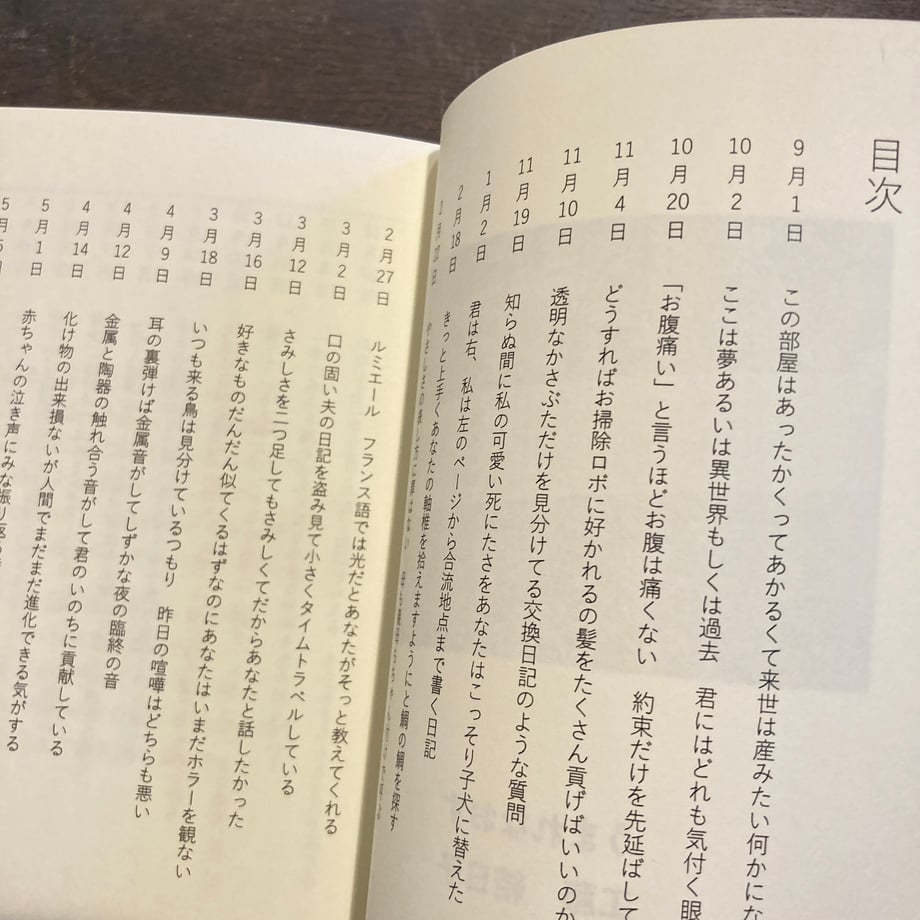 目次
9月1日 この部屋はあったかくってあかるくて来世は産みたい何かにな
10月2日 ここは夢あるいは異世界もしくは過去 君にはどれも気付く眼
10月20日 「お腹痛い」と言うほどお腹は痛くない 約束だけを先延ばして
11月4日 どうすればお掃除ロボに好かれるの髪をたくさん貢げばいいのか
11月10日 透明なかさぶただけを見分けてる交換日記のような質問
11月19日 知らぬ間に私の可愛い死にたさをあなたはこっそり子犬に替えた
1月2日 君は右、私は左のページから合流地点まで書く日記
2月18日 きっと上手くあなたの軸椎を拾えますようにと鯛の鯛を探す
2月22日 やさしさの表し方に罪はない
2月27日 ルミエール フランス語では光だとあなたがそっと教えてくれる
3月2日 口の固い夫の日記を盗み見て小さくタイムトラベルしている
3月12日 さみしさを二つ足してもさみしくてだからあなたと話したかった
3月16日 好きなものだんだん似てくるはずなのにあなたはいまだホラーを観ない
3月18日 いつも来る鳥は見分けているつもり 昨日の喧嘩はどちらも悪い
4月9日 耳の裏弾けば金属音がしてしずかな夜の臨終の音
4月12日 金属と陶器の触れ合う音がして君のいのちに貢献している
4月14日 化け物の出来損ないが人間でまだまだ進化できる気がする
5月1日 赤ちゃんの泣き声にみな振り返
5月5日